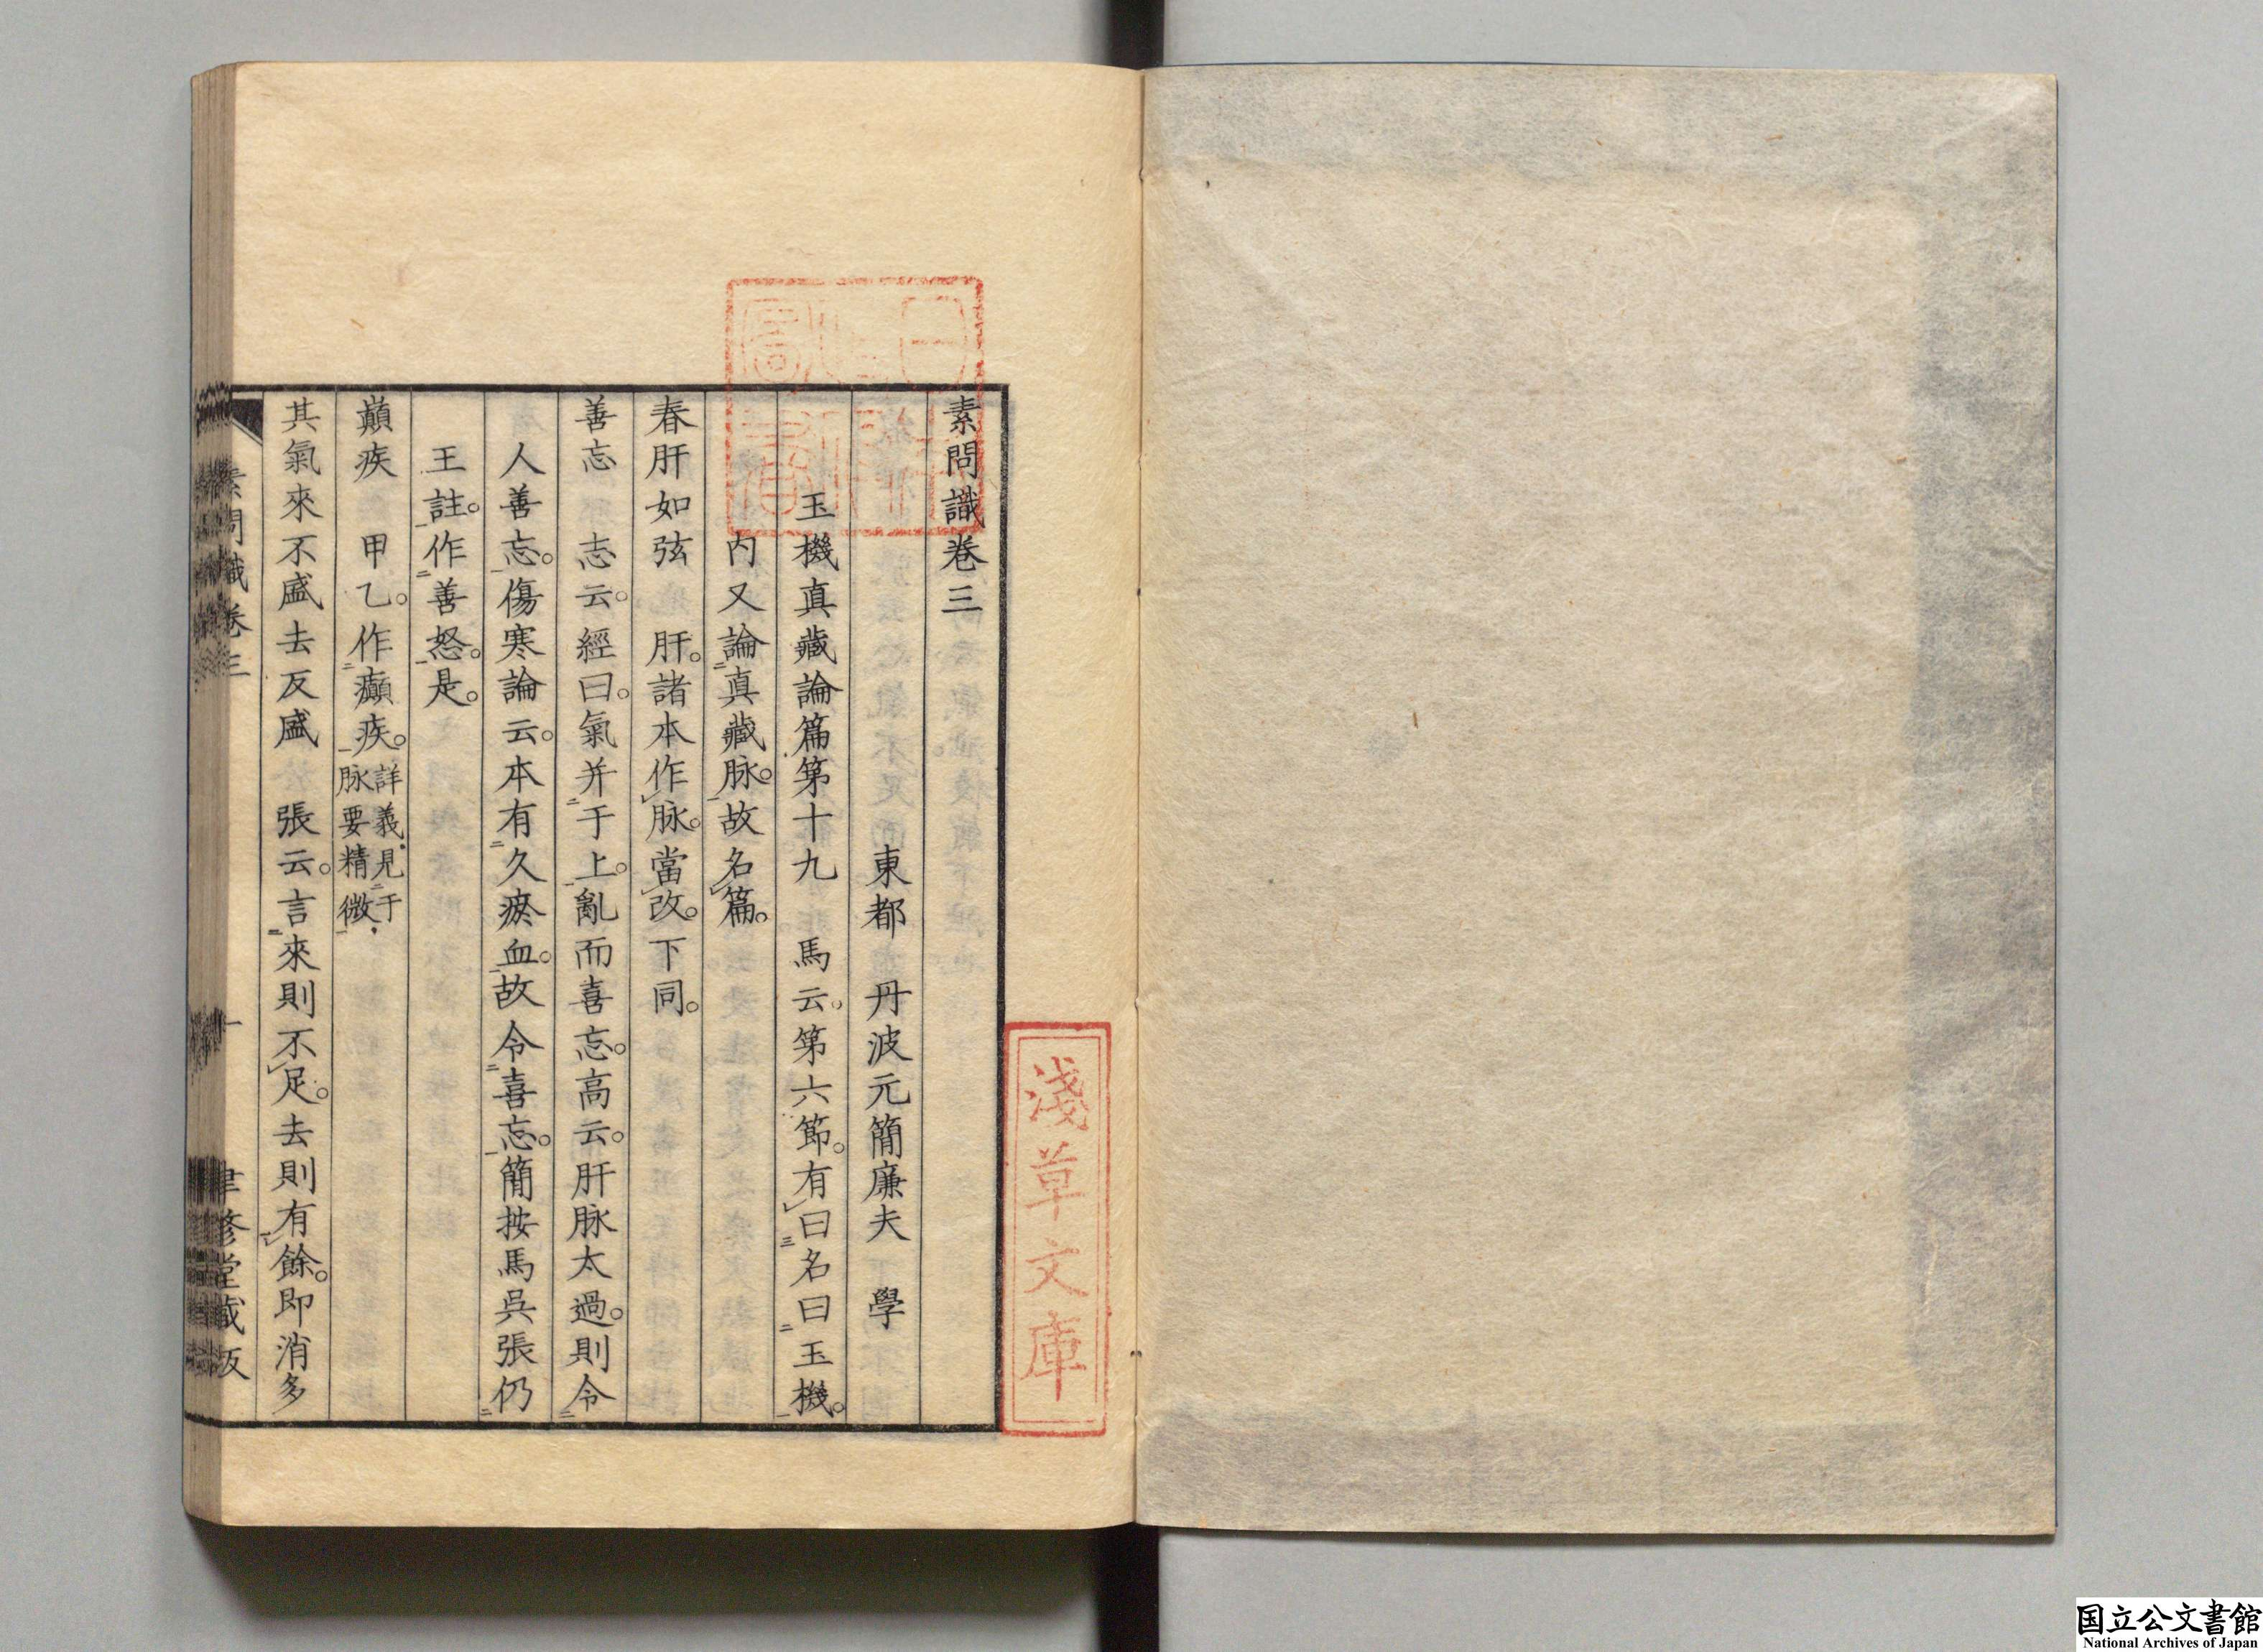 素問識卷三
東都 丹波元簡廉夫 學
玉機真藏論篇第十九 馬云。第六節。有曰名曰玉機。
內又論真藏脉。故名篇。
春肝如弦 肝。諸本作脉。當改。下同。
善忘 志云。經曰。氣并于上。亂而喜忘。高云。肝脉太過。則令
人善忘。傷寒論云。本有久瘀血。故令喜忘。簡按馬吳張仍
王註。作善怒。是。
巔疾 甲乙。作癲疾。詳義見于
脉要精微
其氣來不盛去反盛 張云。言來則不足。去則有餘。即消多
素問識卷三
一
聿修堂藏版
淺草文庫
国立公文書館
National Archives of Japan